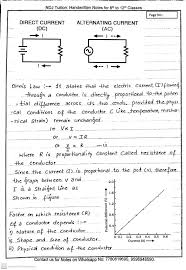 NDJ Tuition: Handwritten Notes for 6th to 12th Classes
Page No.:
DIRECT CURRENT
(DC)
ALTERNATING CURRENT
(AC)
Ohm's Law :→ It states that the electric current (I) flowing
through a conductor is directly proportional to the poten
tial difference across its two ends, provided the physi
cal conditions of the conductor (like temperature, mechan
ical strain) remain unchanged.
i.e V∝I
or V = IR
or V/I = R
where R is proportionality Constant Called resistance of
the conductor
Since the Current (I) is proportional to the pot (V), therefore
the graph between V and
I is a Straight line as
Shown in figure
Factor on which resistance (R)
of a conductor depends :→
1) Nature of the Conductor
2) Shape and size of Conductor
3) Physical condition of the conductor
Contact us for Notes on Whatsapp No: 7780819695, 9596845590